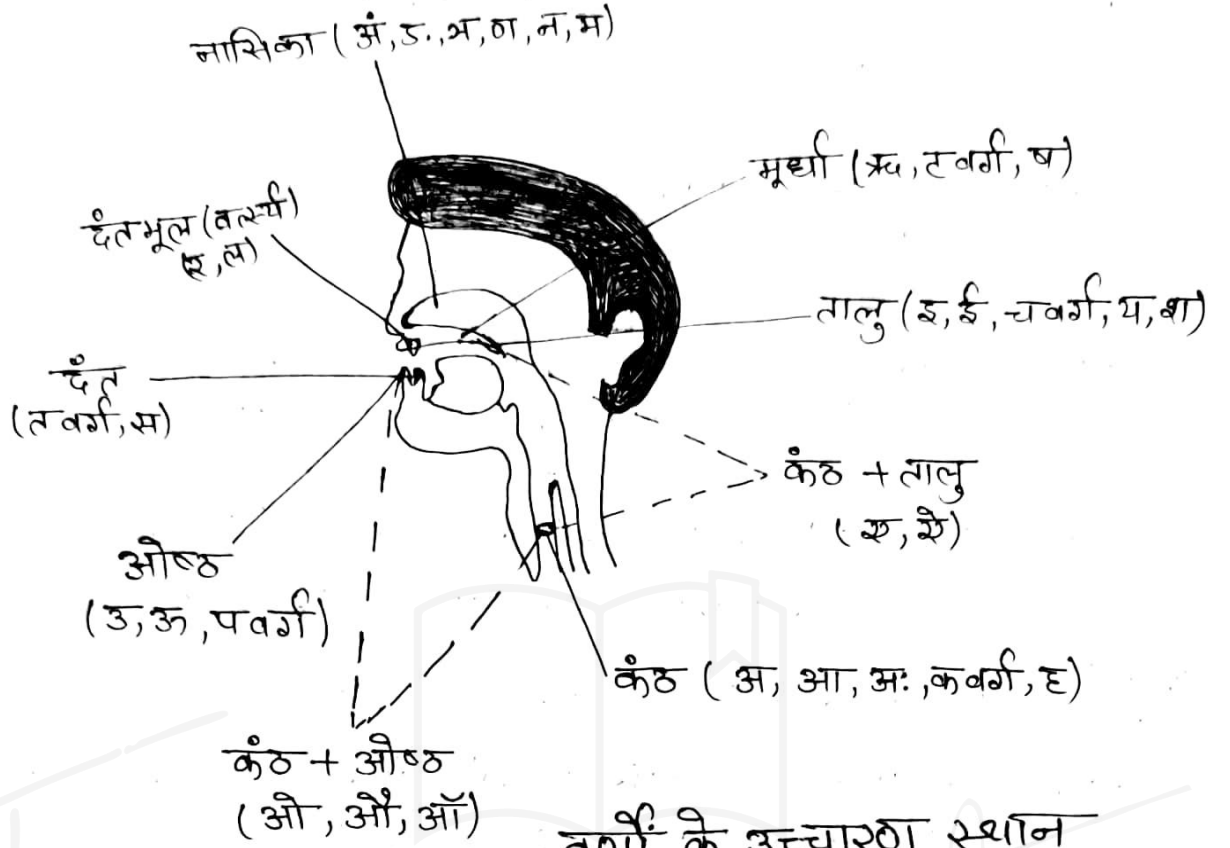 नासिका (अं, ङ, ञ, ण, न, म)
मूर्धा (ऋ, टवर्ग, ष)
दंतमूल (वर्त्स्य)
(र, ल)
तालु (इ, ई, चवर्ग, य, श)
दंत
(तवर्ग, स)
कंठ + तालु
(ए, ऐ)
ओष्ठ
(उ, ऊ, पवर्ग)
कंठ (अ, आ, अः, कवर्ग, ह)
कंठ + ओष्ठ
(ओ, औ, ऑ)
वर्णों के उच्चारण स्थान